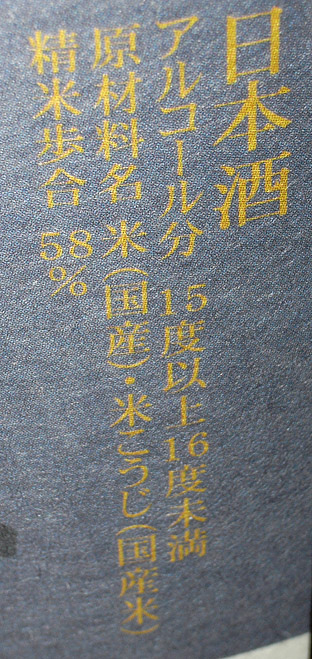 日本酒
アルコール分 15度以上16度未満
原材料名 米(国産)・米こうじ(国産米)
精米歩合 58%